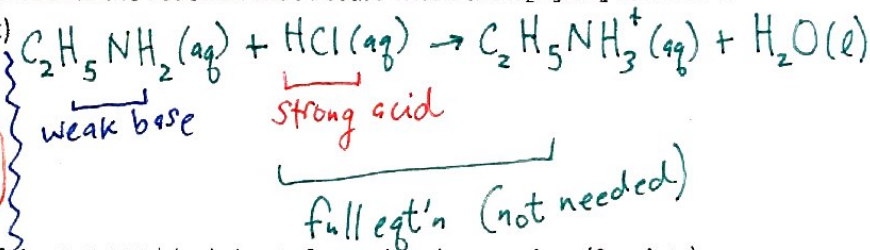 C₂H₅NH₂(aq) + HCl(aq) → C₂H₅NH₃⁺(aq) + H₂O(l)
weak base strong acid
full eqt'n (not needed)